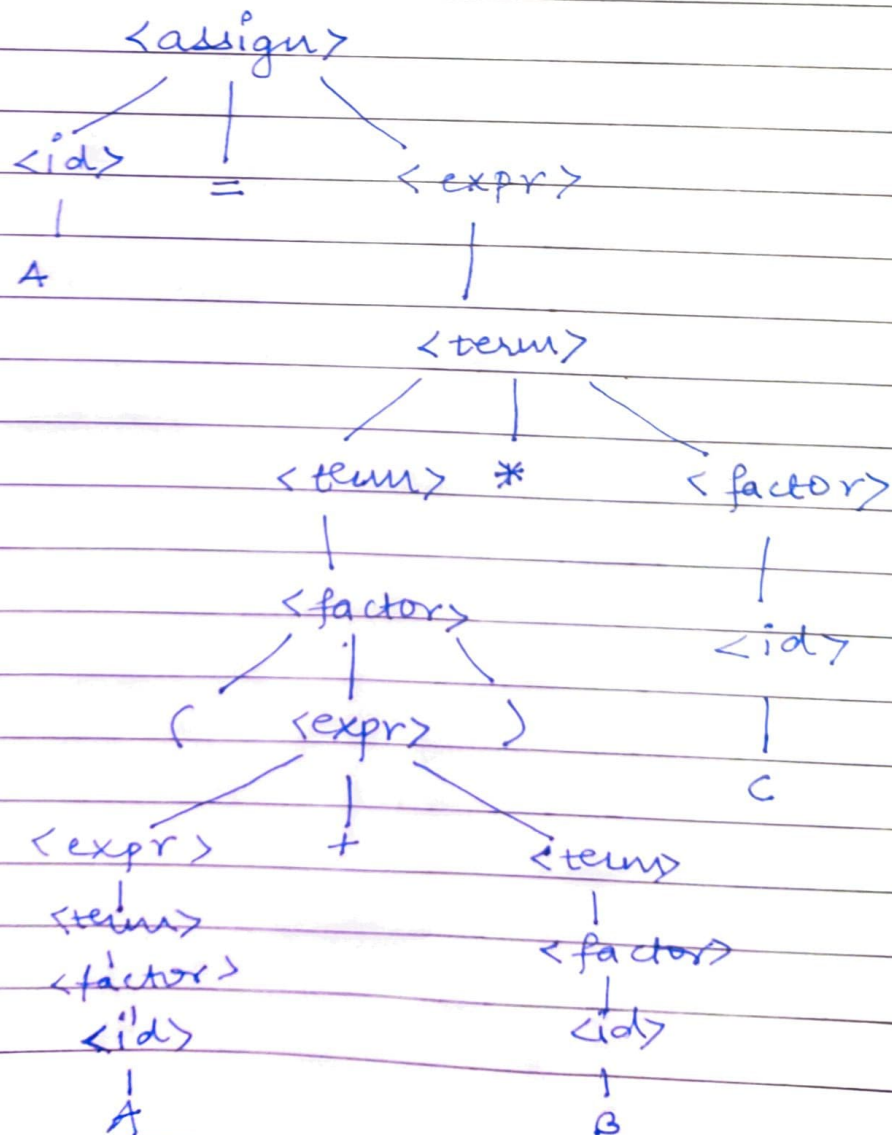 <assign>
<id> = <expr>
A
<term>
<term> * <factor>
<factor> <id>
( <expr> )
C
<expr> + <term>
<term>
<factor>
<factor>
<id> <id>
A B